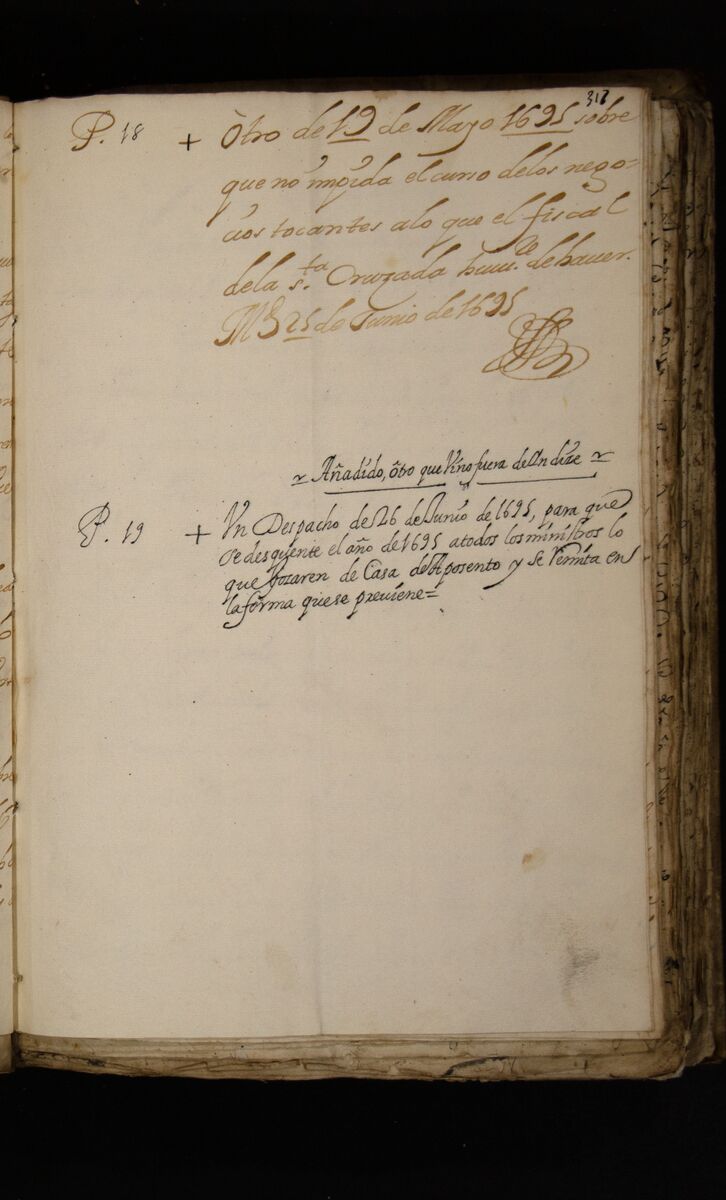 317
P. 18 + Otro de 19 de Mayo 1695 sobre
que no impida el curso delos nego-
cios tocantes alo que el fiscal
dela s.ta Cruzada huu.re de hauer.
M.d 25 de Junio de 1695
~ Añadido, otro que Vino fuera de Yndize ~
P. 19 + Vn Despacho de 26 de Junio de 1695, para que
se desquente el año de 1695 atodos los ministros lo
que gozaren de Casa de Aposento y se Remita en
la forma que se preuiene=